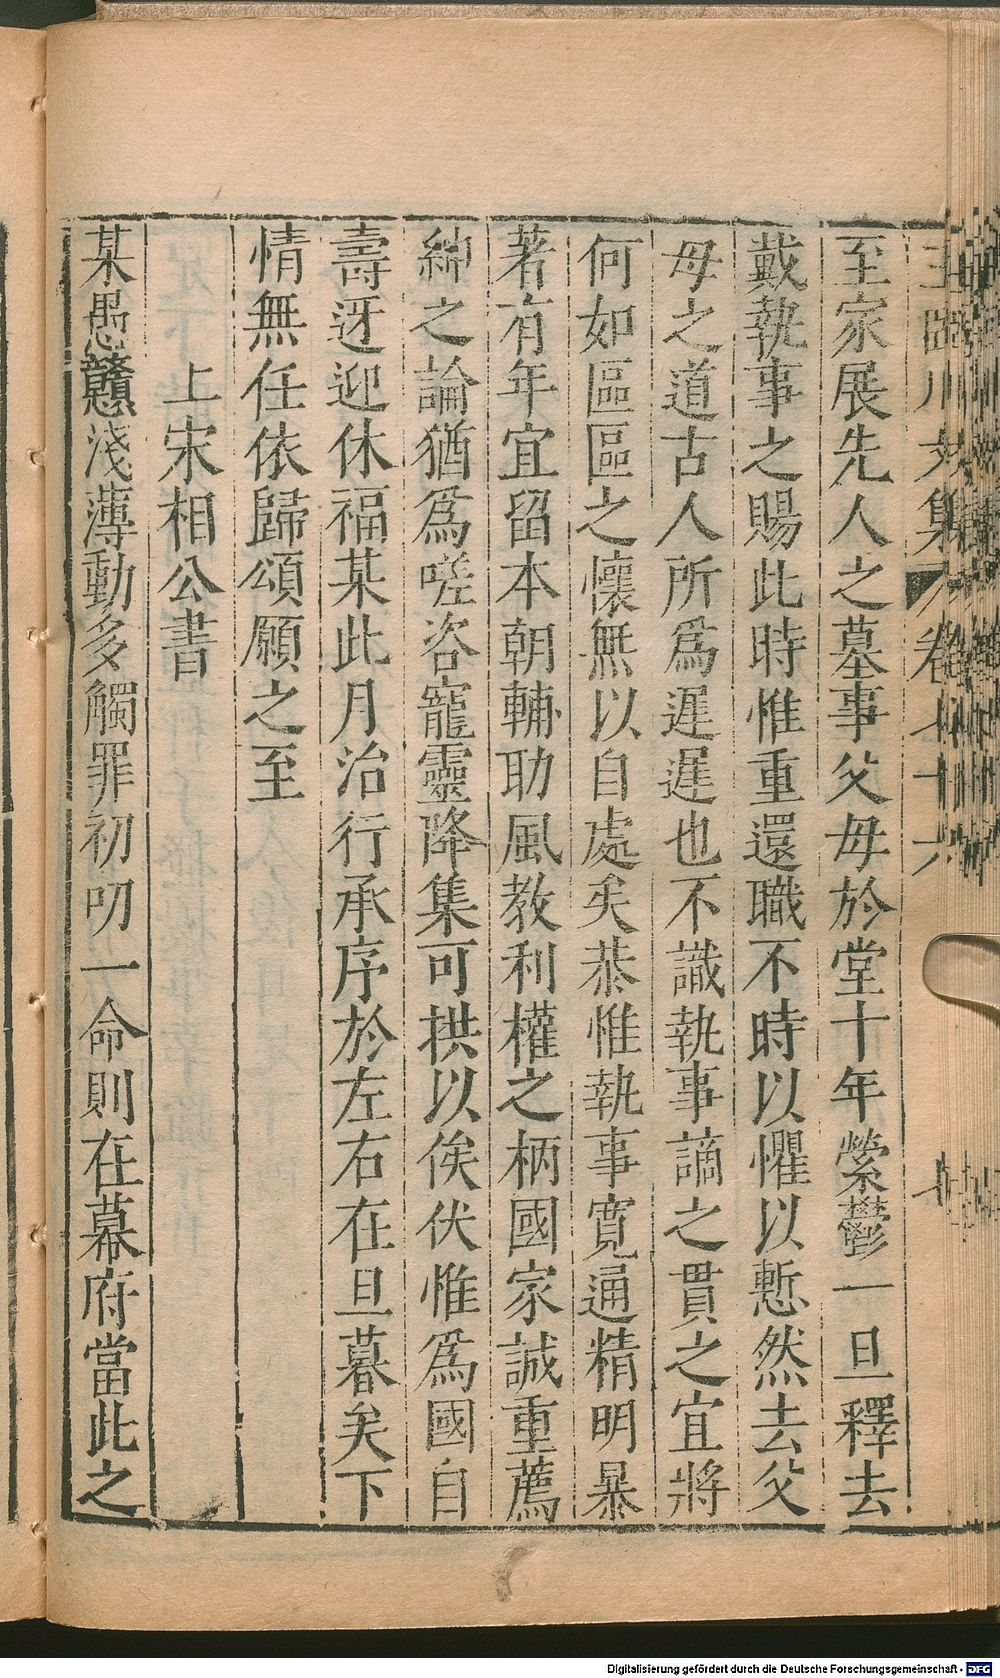 至家展先人之墓事父毋於堂十年縈鬱一旦釋去
戴執事之賜此時惟重還職不時以懼以慙然去父
毋之道古人所爲遲遲也不識執事謫之貰之宜將
何如區區之懷無以自處矣恭惟執事寛通精明暴
著有年宜留本朝輔助風教利權之柄國家誠重薦
紳之論猶爲嗟咨寵靈降集可拱以俟伏惟爲國自
壽迓迎休福某此月治行承序於左右在旦暮矣下
情無任依歸頌願之至
上宋相公書
某愚戇淺薄動多觸罪初叨一命則在幕府當此之
Digitalisierung gefördert durch die Deutsche Forschungsgemeinschaft - DFG